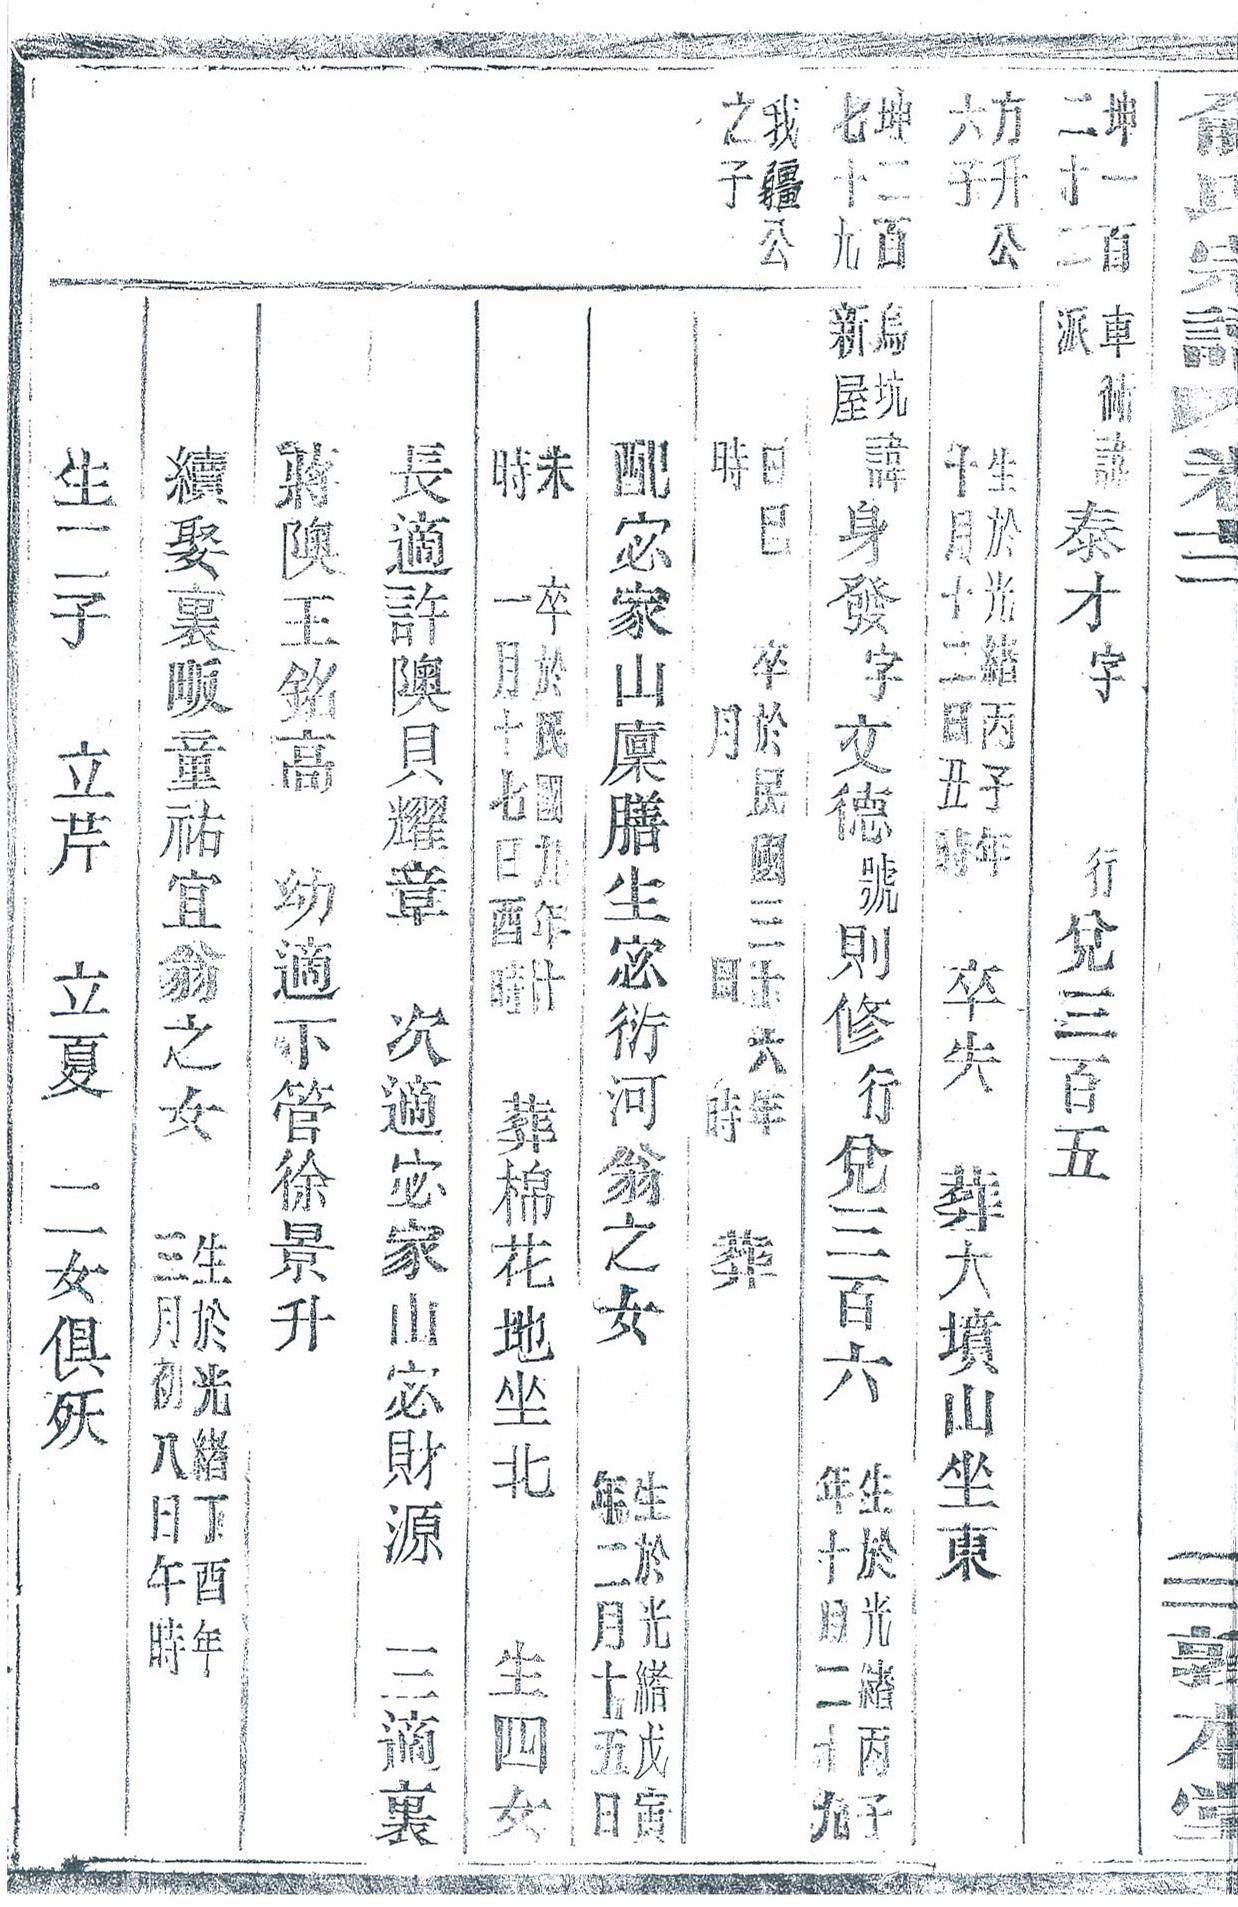 俞氏宗譜 卷二 三 敦本堂
坤一百
二十二
車衕
派
諱泰才 字 行兌三百五
方升公
六子
生於光緒丙子年
十月十二日丑時
卒失 葬大墳山坐東
坤二百
七十九
烏坑
新屋
諱身發 字文德 號則修 行兌三百六
生於光緒丙子
年十月二十九
我疆公
之子
日巳
時
卒於民國三十六年
月 日 時
葬
配宓家山廩膳生宓衍河翁之女
生於光緒戊寅
年二月十五日
未
時
卒於民國九年十
一月十七日酉時
葬棉花地坐北 生四女
長適許隩貝耀章 次適宓家山宓財源 三適裏
蔣隩王銘高 幼適下管徐景升
續娶裏畈童祐宜翁之女
生於光緒丁酉年
三月初八日午時
生二子 立芹 立夏 二女俱殀